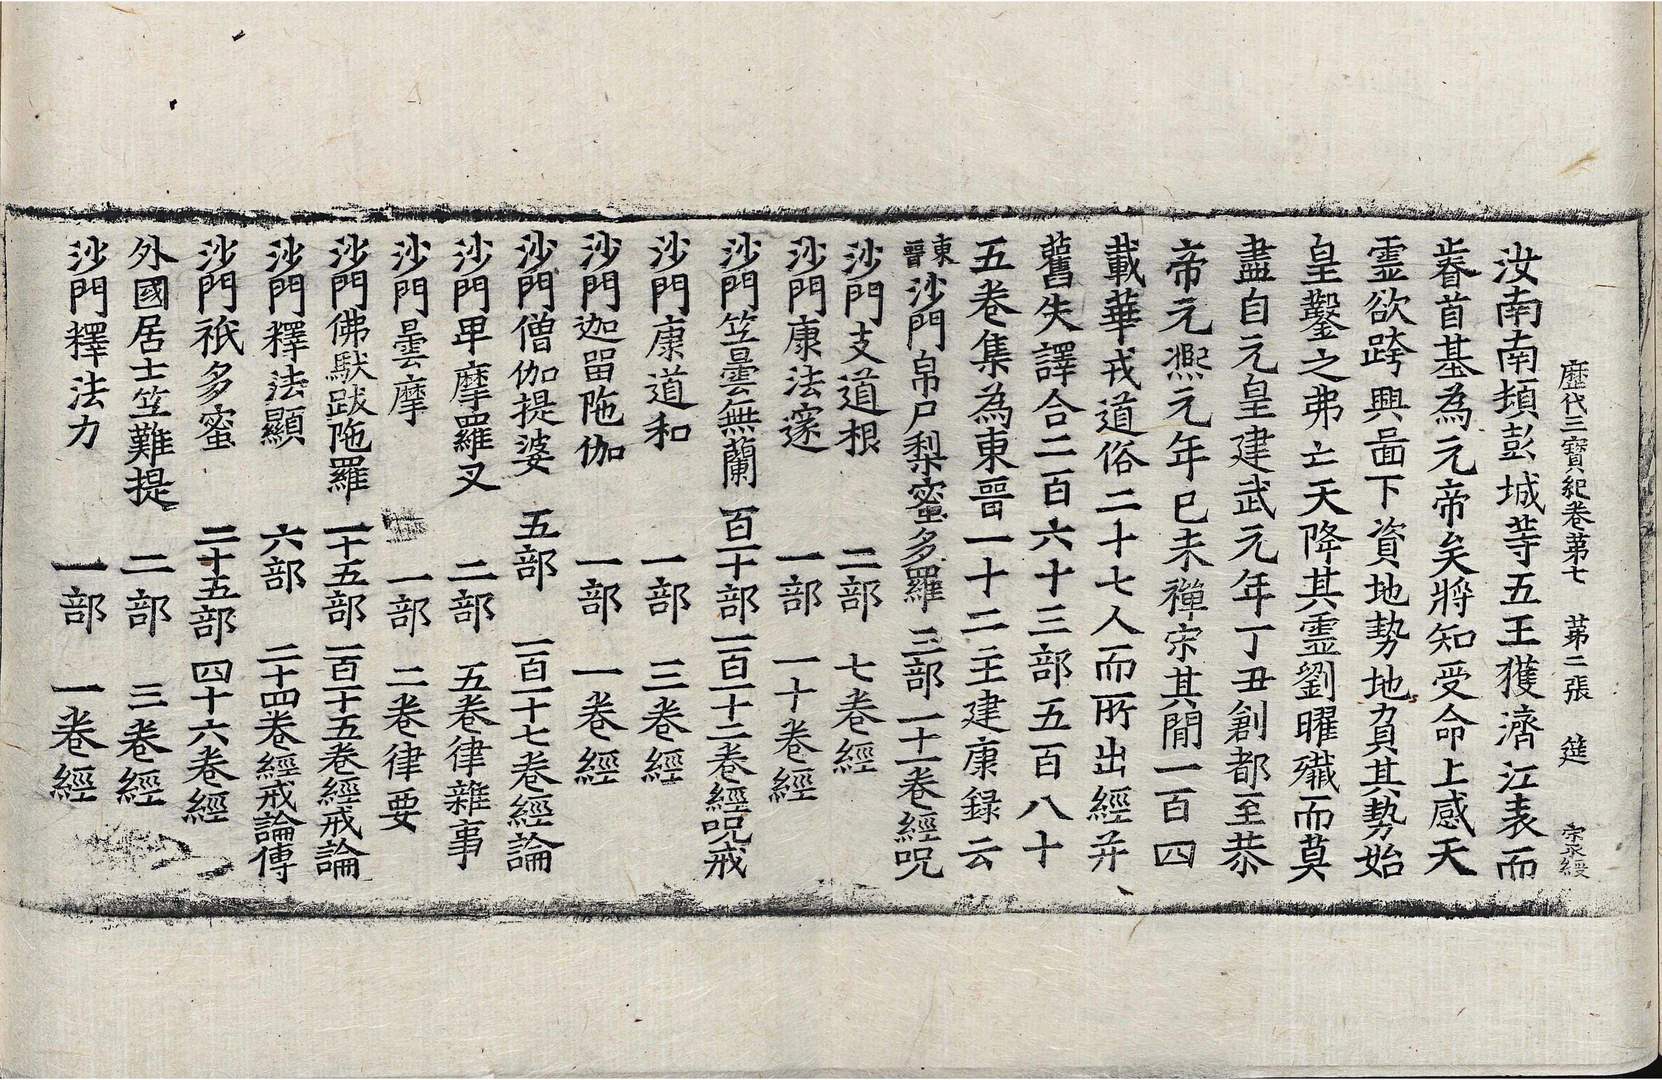 歷代三寶紀卷第七 第二張 筵 宗承綬
汝南南頓彭城等五王獲濟江表而
睿首基為元帝矣將知受命上感天
靈欲跨興啚下資地勢地負其勢始
皇鑿之弗亡天降其靈劉曜殲而莫
盡自元皇建武元年丁丑創都至恭
帝元熈元年巳未禪宋其間一百四
載華戎道俗二十七人而所出經并
舊失譯合二百六十三部五百八十
五卷集為東晉一十二主建康録云
東晉沙門帛尸梨蜜多羅 三部 一十一卷經呪
沙門支道根 二部 七卷經
沙門康法邃 一部 一十卷經
沙門竺曇無蘭 百一十部 一百一十二卷經呪戒
沙門康道和 一部 三卷經
沙門迦留陁伽 一部 一卷經
沙門僧伽提婆 五部 一百一十七卷經論
沙門卑摩羅叉 二部 五卷律雜事
沙門曇摩 一部 二卷律要
沙門佛馱跋陁羅 一十五部 一百一十五卷經戒論
沙門釋法顯 六部 二十四卷經戒論傳
沙門祇多蜜 二十五部 四十六卷經
外國居士竺難提 二部 三卷經
沙門釋法力 一部 一卷經